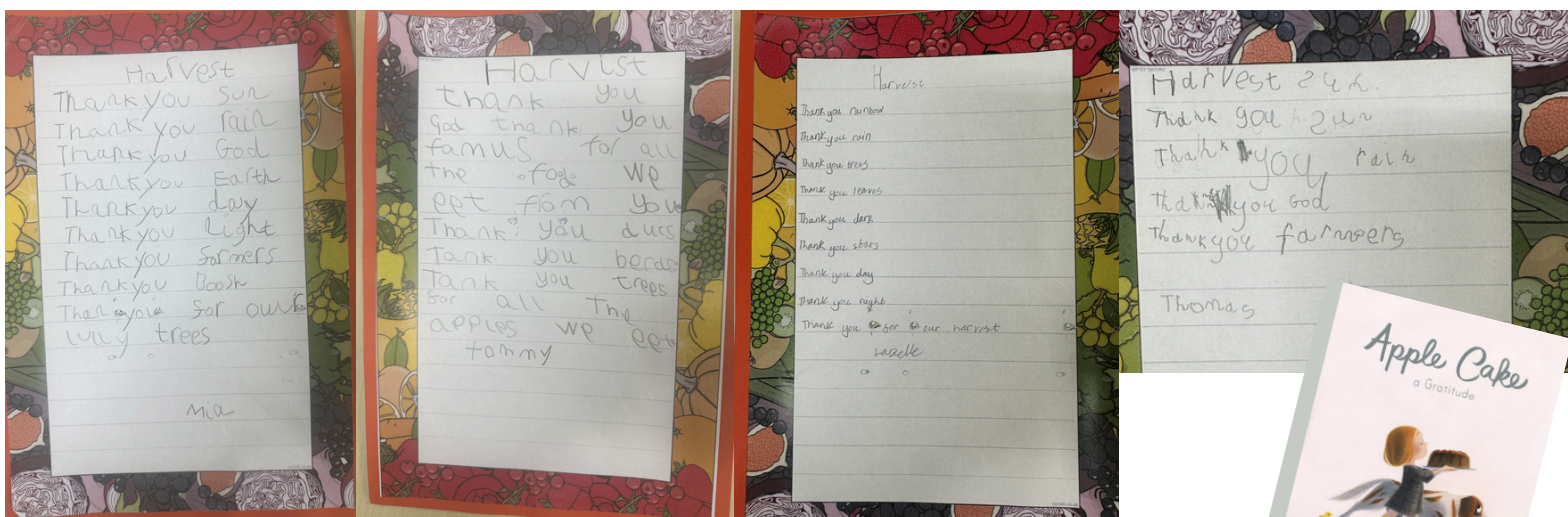 Harvest
Thank you Sun
Thank you rain
Thank you God
Thank you Earth
Thank you day
Thank you Light
Thank you farmers
Thank you Boosh
Thank you for our
trees
Mia
Harvist
thank you
God thank you
famus for all
the we
eet fom you
Thank you ducs
Tank you berds
Tank you trees
for all the
apples we eet
tommy
Harverst
Thank you rainbow
Thank you rain
Thank you trees
Thank you leaves
Thank you dark
Thank you stars
Thank you day
Thank you night
Thank you for our harvest
Harvest sun.
Thank you sun
Thank you rain
Thank you God
Thank you farmeers
Thomas
Apple Cake
a Gratitude